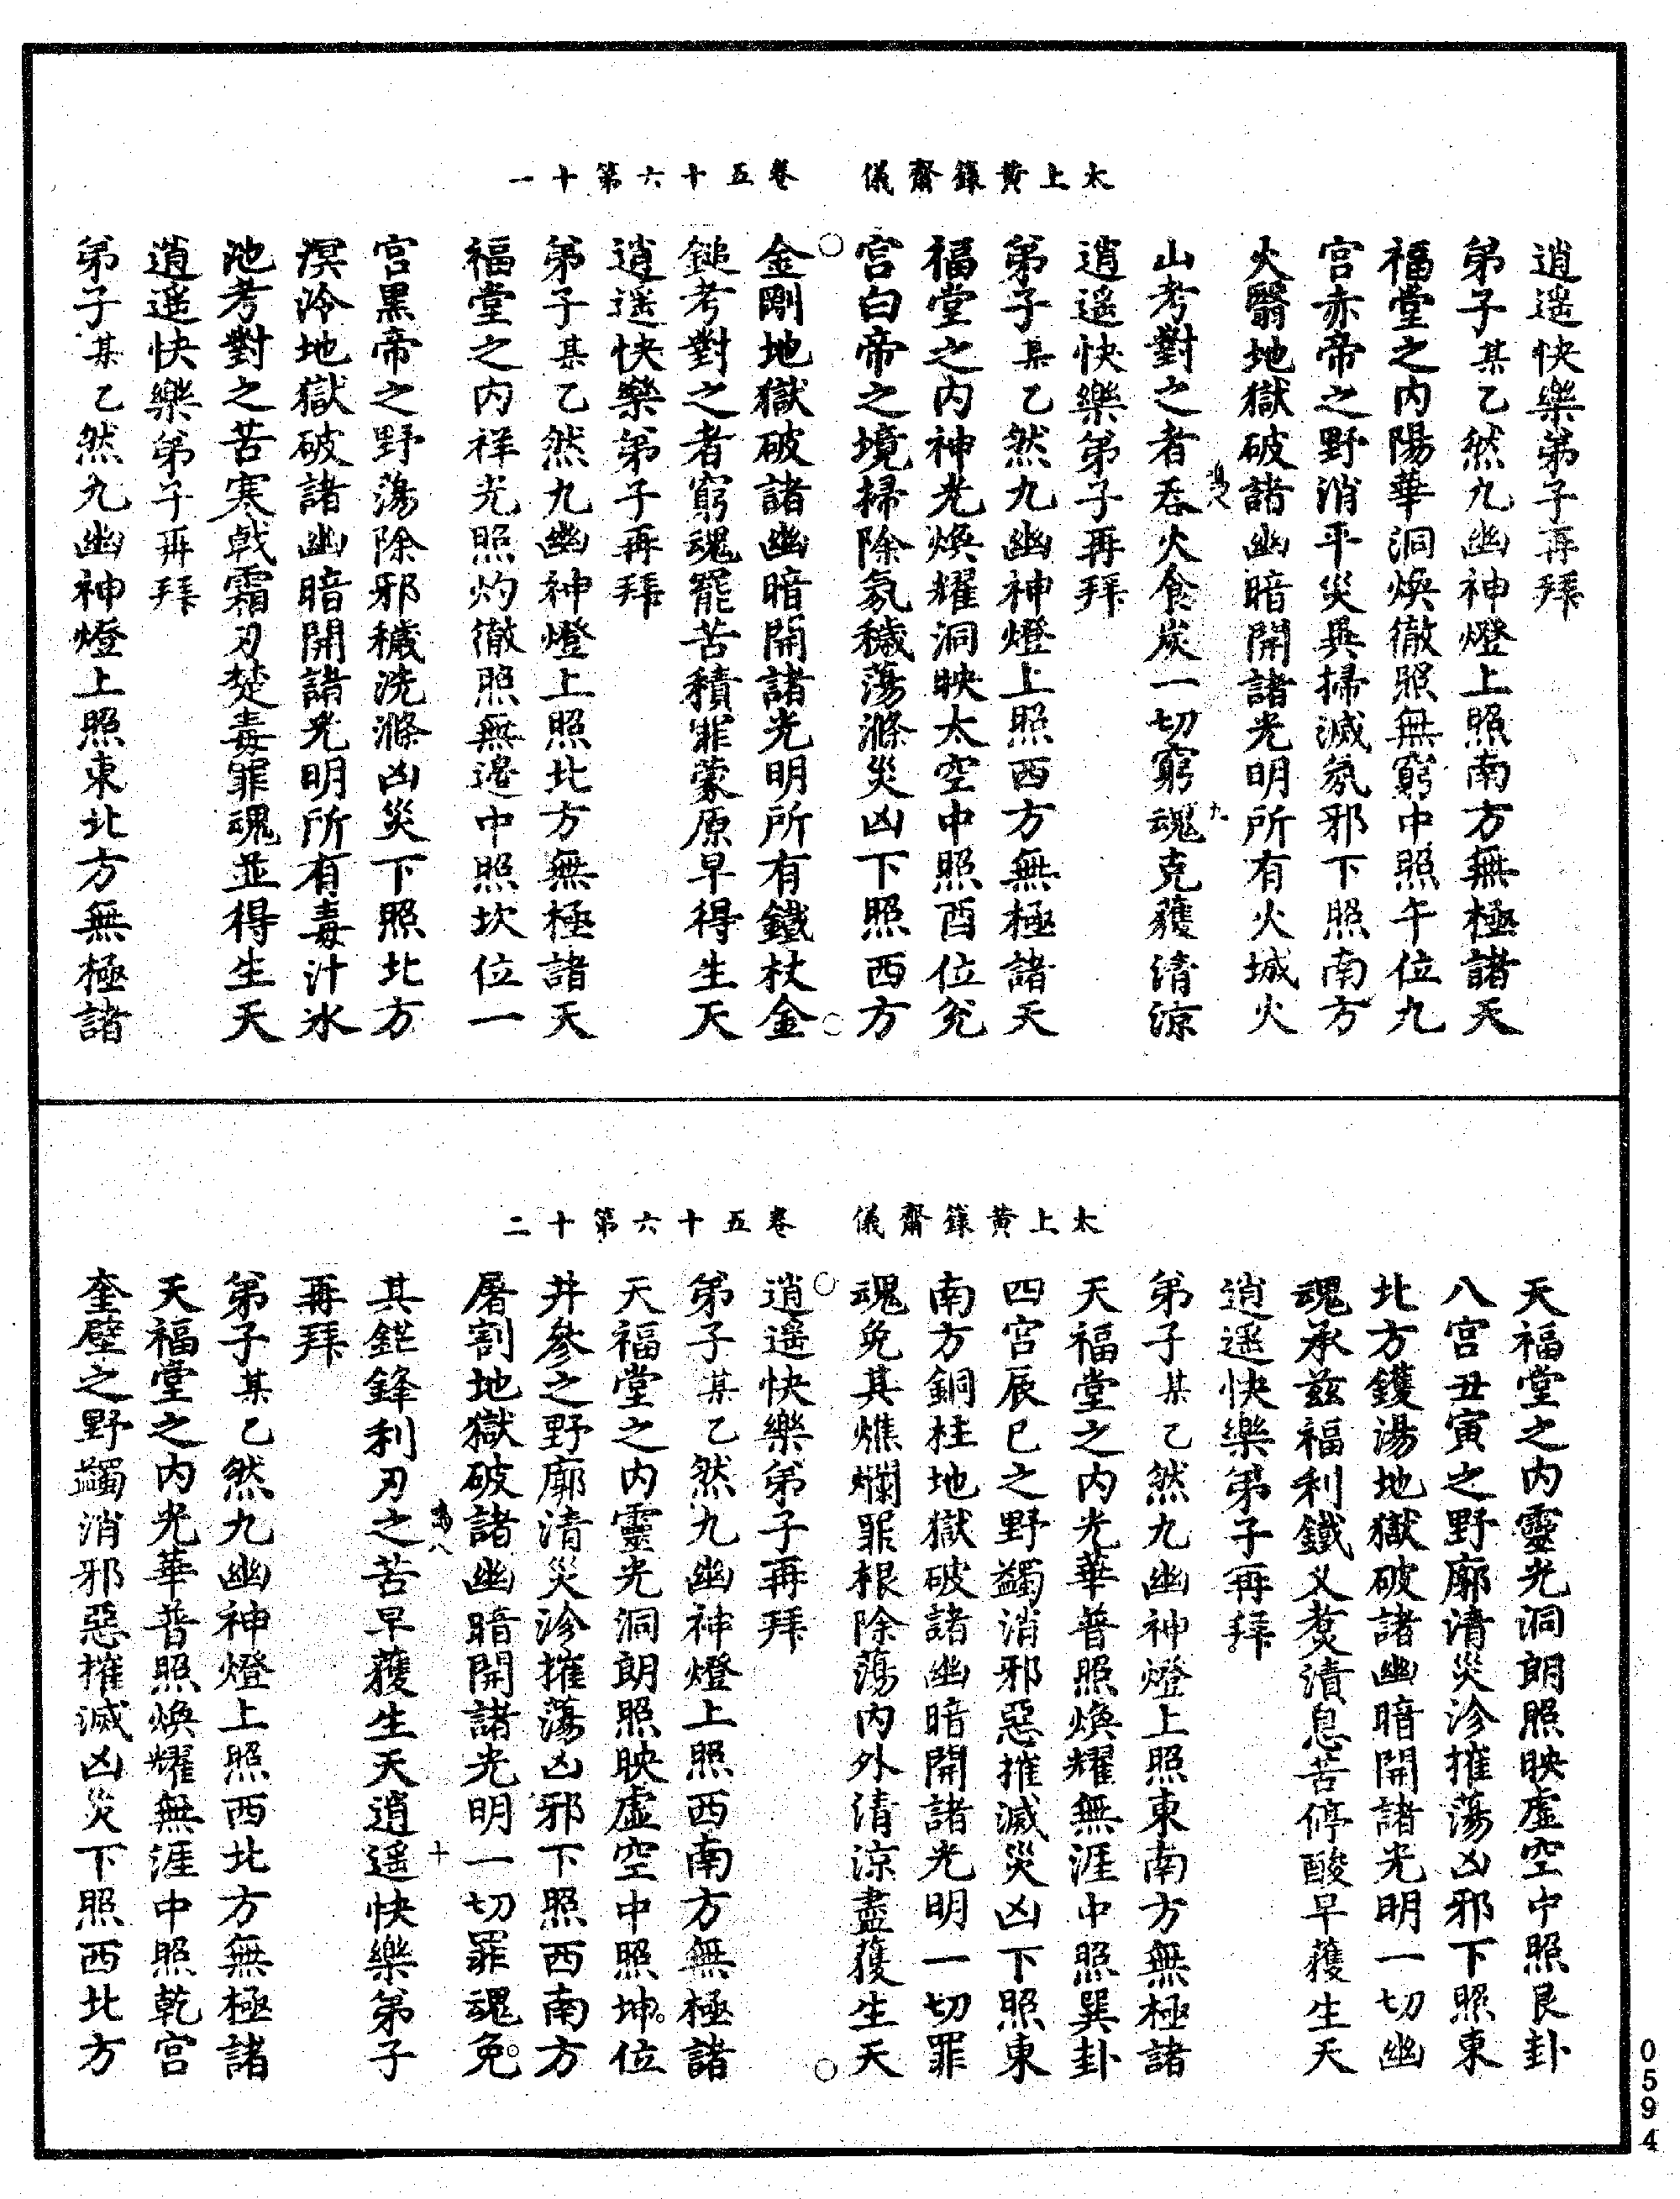 太上黃籙齋儀　卷五十六第十一
逍遥快樂弟子再拜
弟子某乙然九幽神燈上照南方無極諸天
福堂之内陽華洞煥徹照無窮中照午位九
宫赤帝之野消平災異掃滅氛邪下照南方
火翳地獄破諸幽暗開諸光明所有火城火
山考對之者吞火食炭一切窮魂克獲清涼
逍遥快樂弟子再拜
弟子某乙然九幽神燈上照西方無極諸天
福堂之内神光煥耀洞映太空中照酉位兊
宫白帝之境掃除氛穢蕩滌災凶下照西方
金剛地獄破諸幽暗開諸光明所有鐵杖金
鎚考對之者窮魂罷苦積罪蒙原早得生天
逍遥快樂弟子再拜
弟子某乙然九幽神燈上照北方無極諸天
福堂之内祥光照灼徹照無邊中照坎位一
宫黑帝之野蕩除邪穢洗滌凶災下照北方
溟泠地獄破諸幽暗開諸光明所有毒汁冰
池考對之苦寒戟霜刃楚毒罪魂並得生天
逍遥快樂弟子再拜
弟子某乙然九幽神燈上照東北方無極諸
太上黃籙齋儀　卷五十六第十二
天福堂之内靈光洞朗照映虚空中照艮卦
八宫丑寅之野廓清災沴摧蕩凶邪下照東
北方鑊湯地獄破諸幽暗開諸光明一切幽
魂承兹福利鐵叉煑漬息苦停酸早獲生天
逍遥快樂弟子再拜
弟子某乙然九幽神燈上照東南方無極諸
天福堂之内光華普照煥耀無涯中照巽卦
四宫辰巳之野蠲消邪惡摧滅災凶下照東
南方銅柱地獄破諸幽暗開諸光明一切罪
魂免其燋爛罪根除蕩内外清涼盡獲生天
逍遥快樂弟子再拜
弟子某乙然九幽神燈上照西南方無極諸
天福堂之内靈光洞朗照映虚空中照坤位
井參之野廓清災沴摧蕩凶邪下照西南方
屠割地獄破諸幽暗開諸光明一切罪魂免
其鋩鋒利刃之苦早獲生天逍遥快樂弟子
再拜
弟子某乙然九幽神燈上照西北方無極諸
天福堂之内光華普照煥耀無涯中照乾宫
奎壁之野蠲消邪惡摧滅凶災下照西北方
九
十
0594